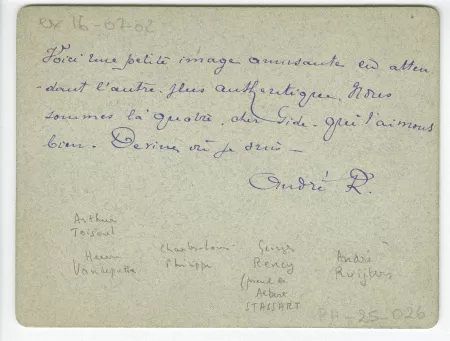 ex 16-07-02
Voici une petite image amusante en atten
-dant l'autre plus authentique. Nous
sommes là quatre, cher Gide, qui t'aimons
bien. Devine où je suis —
André R.
Arthur
Toisoul
Henri
Vandeputte
Charles-Louis
Philippe
Georges
Rency
(pseud. de
Albert
STASSART
André
Ruijters
PA-25-026